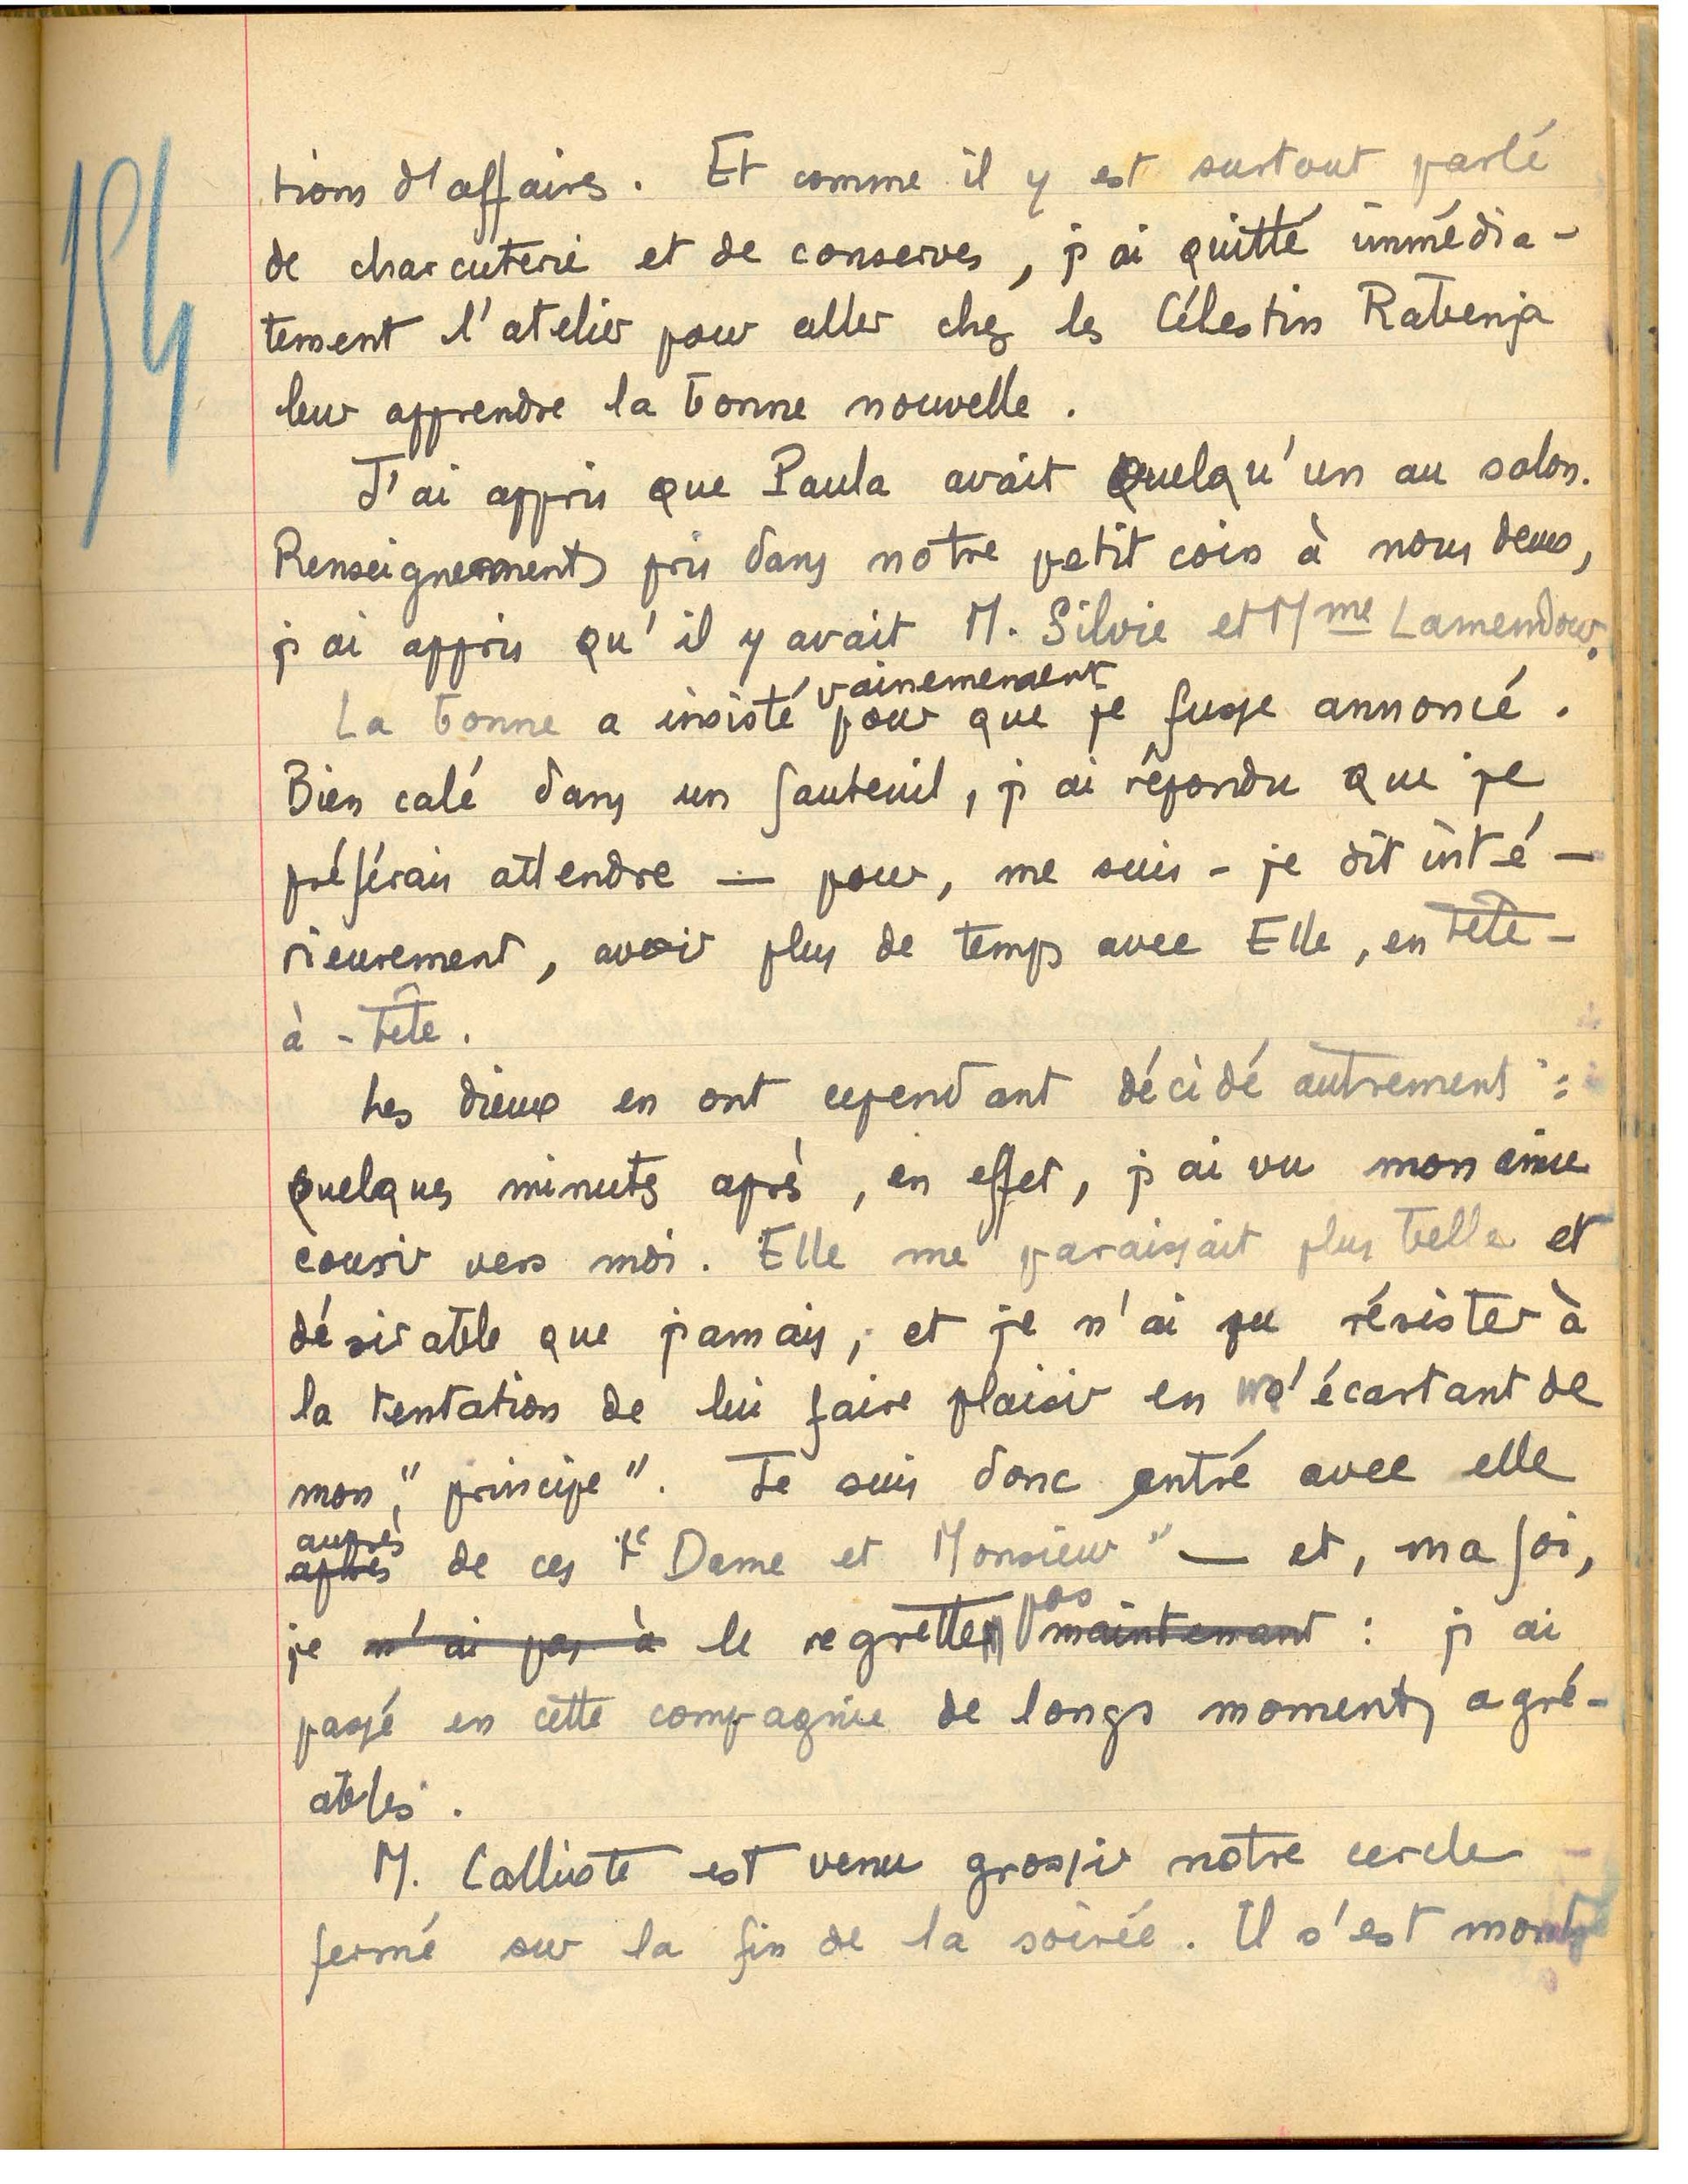 154
tions d'affaires. Et comme il y est surtout parlé
de charcuterie et de conserves, j'ai quitté immédia-
tement l'atelier pour aller chez les Célestin Rabenja
leur apprendre la bonne nouvelle.
J'ai appris que Paula avait quelqu'un au salon.
Renseignements pris dans notre petit coin à nous deux,
j'ai appris qu'il y avait M. Silvie et Mme Lamendour.
vainemement
La bonne a insisté pour que je fusse annoncé.
Bien calé dans un fauteuil, j'ai répondu que je
préférais attendre — pour, me suis-je dit inté-
rieurement, avoir plus de temps avec Elle, en tête-
à-tête.
Les dieux en ont cependant décidé autrement :
quelques minutes après, en effet, j'ai vu mon amie
courir vers moi. Elle me paraissait plus belle et
désirable que jamais, et je n'ai pu résister à
la tentation de lui faire plaisir en m'écartant de
mon "principe". Je suis donc entré avec elle
auprès
après de ces "Dame et Monsieur" — et, ma foi,
pas
je n'ai pas à le regretter maintenant : j'ai
passé en cette compagnie de longs moments agré-
ables.
M. Calliste est venu grossir notre cercle
fermé sur la fin de la soirée. Il s'est montré